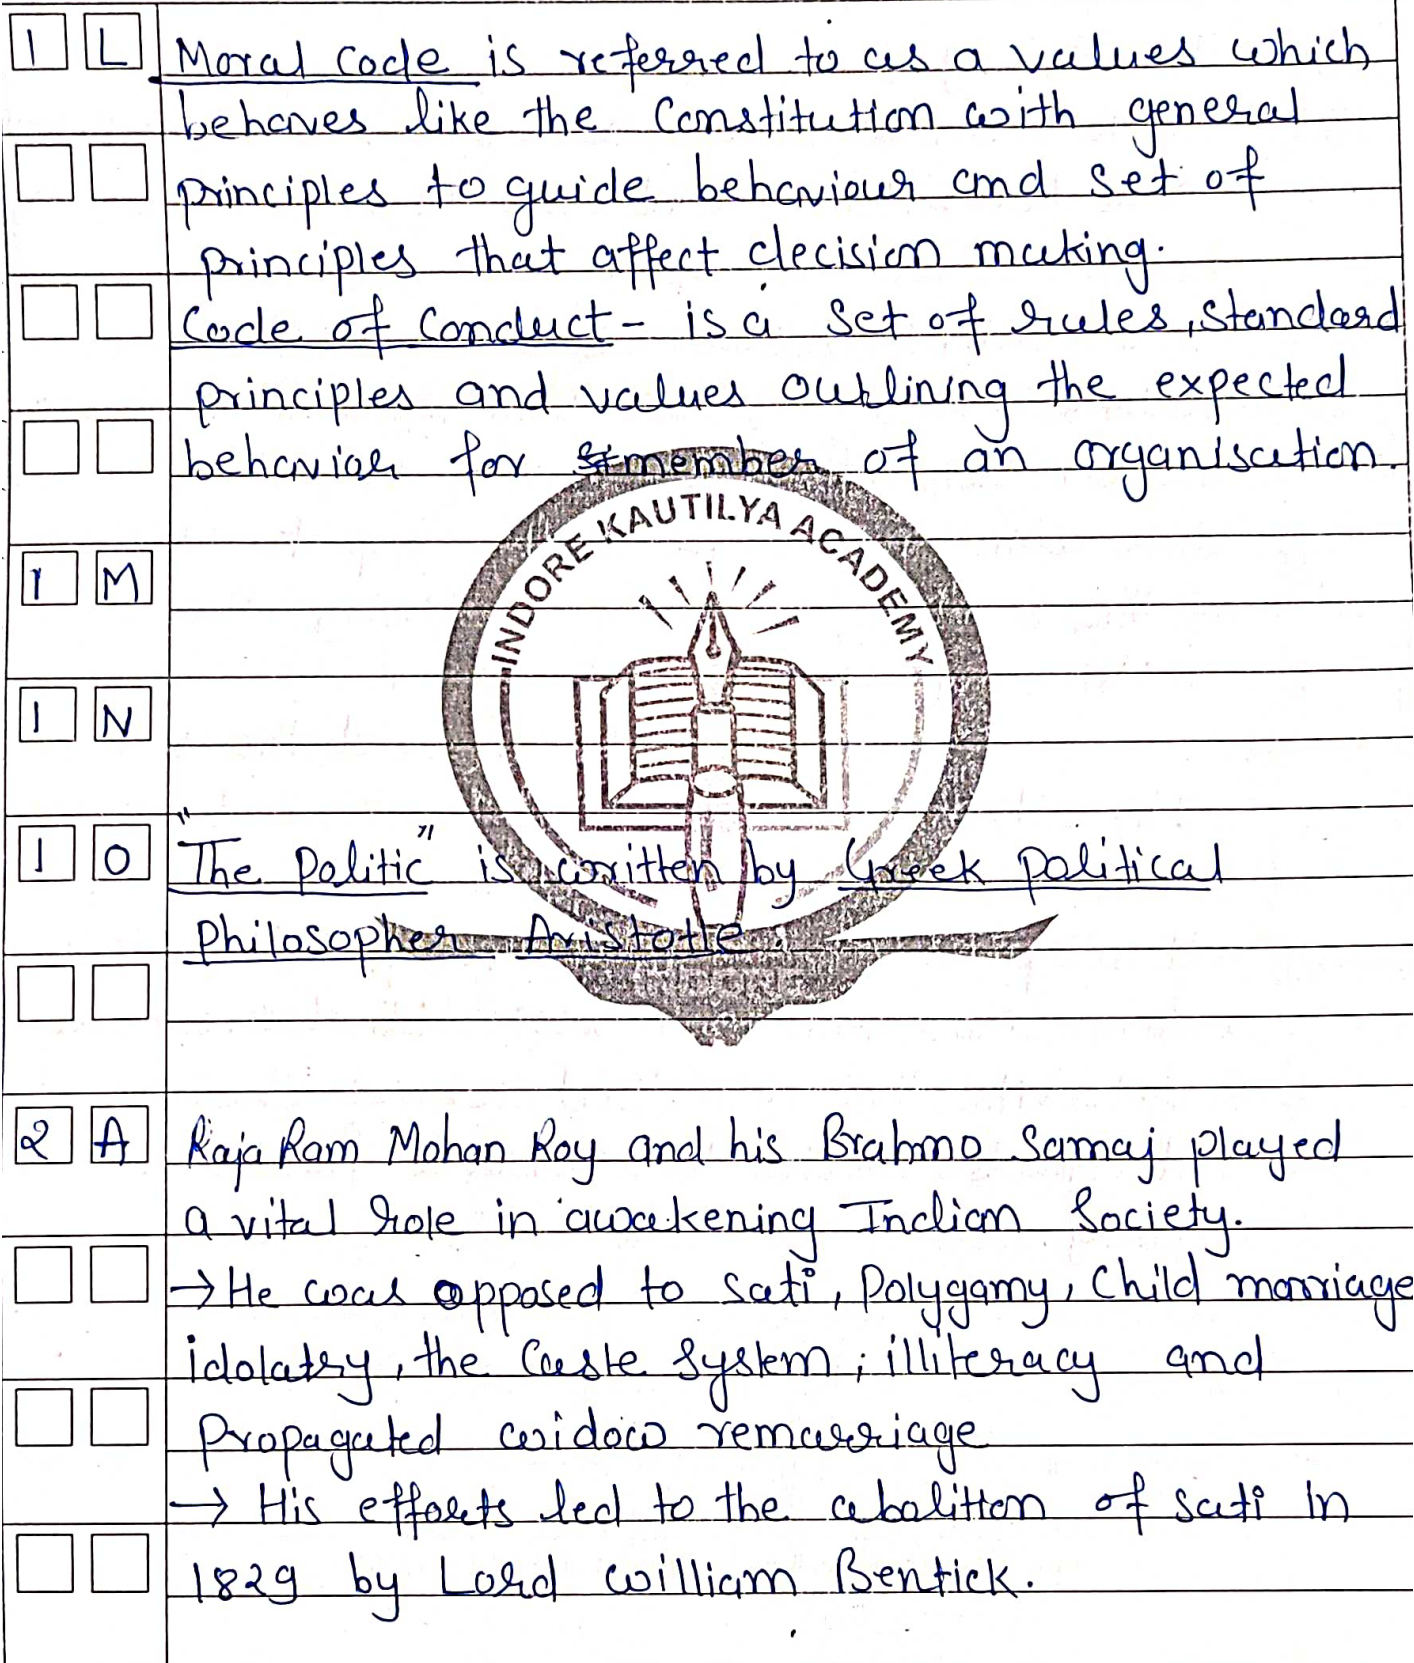 1 L Moral Code is referred to as a values which
behaves like the Constitution with general
principles to guide behaviour and set of
principles that affect decision making.
Code of Conduct - is a set of rules, standard
principles and values outlining the expected
behavior for member of an organisation.
INDORE KAUTILYA ACADEMY
1 M
1 N
1 O "The Politic" is written by Greek Political
Philosopher Aristotle.
2 A Raja Ram Mohan Roy and his Brahmo Samaj played
a vital role in awakening Indian Society.
→ He was opposed to sati, Polygamy, Child marriage
idolatry, the Caste System, illiteracy and
Propagated widow remarriage
→ His efforts led to the abolition of sati in
1829 by Lord William Bentick.